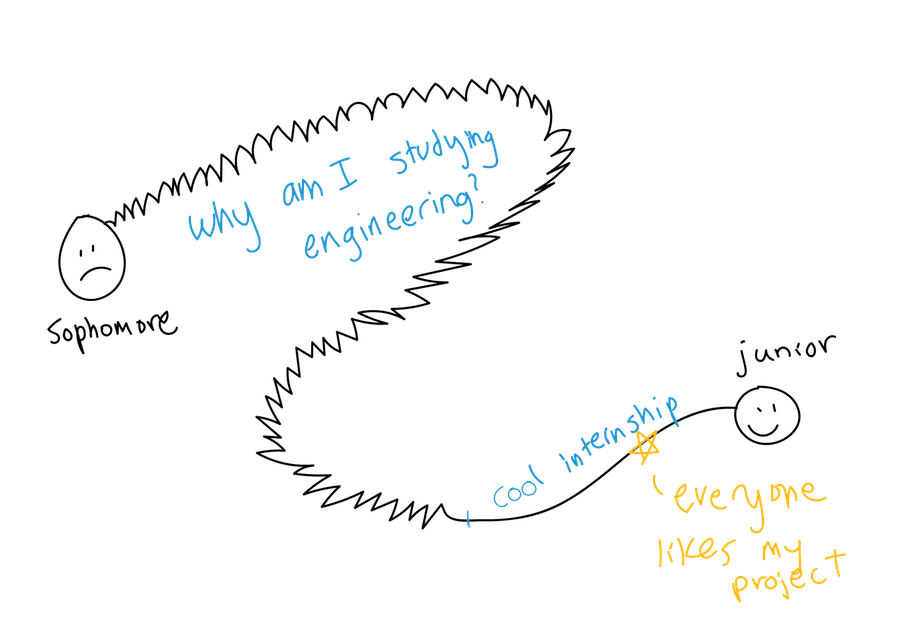 why am I studying
engineering?
Sophomore
junior
cool internship
'everyone
likes my
project